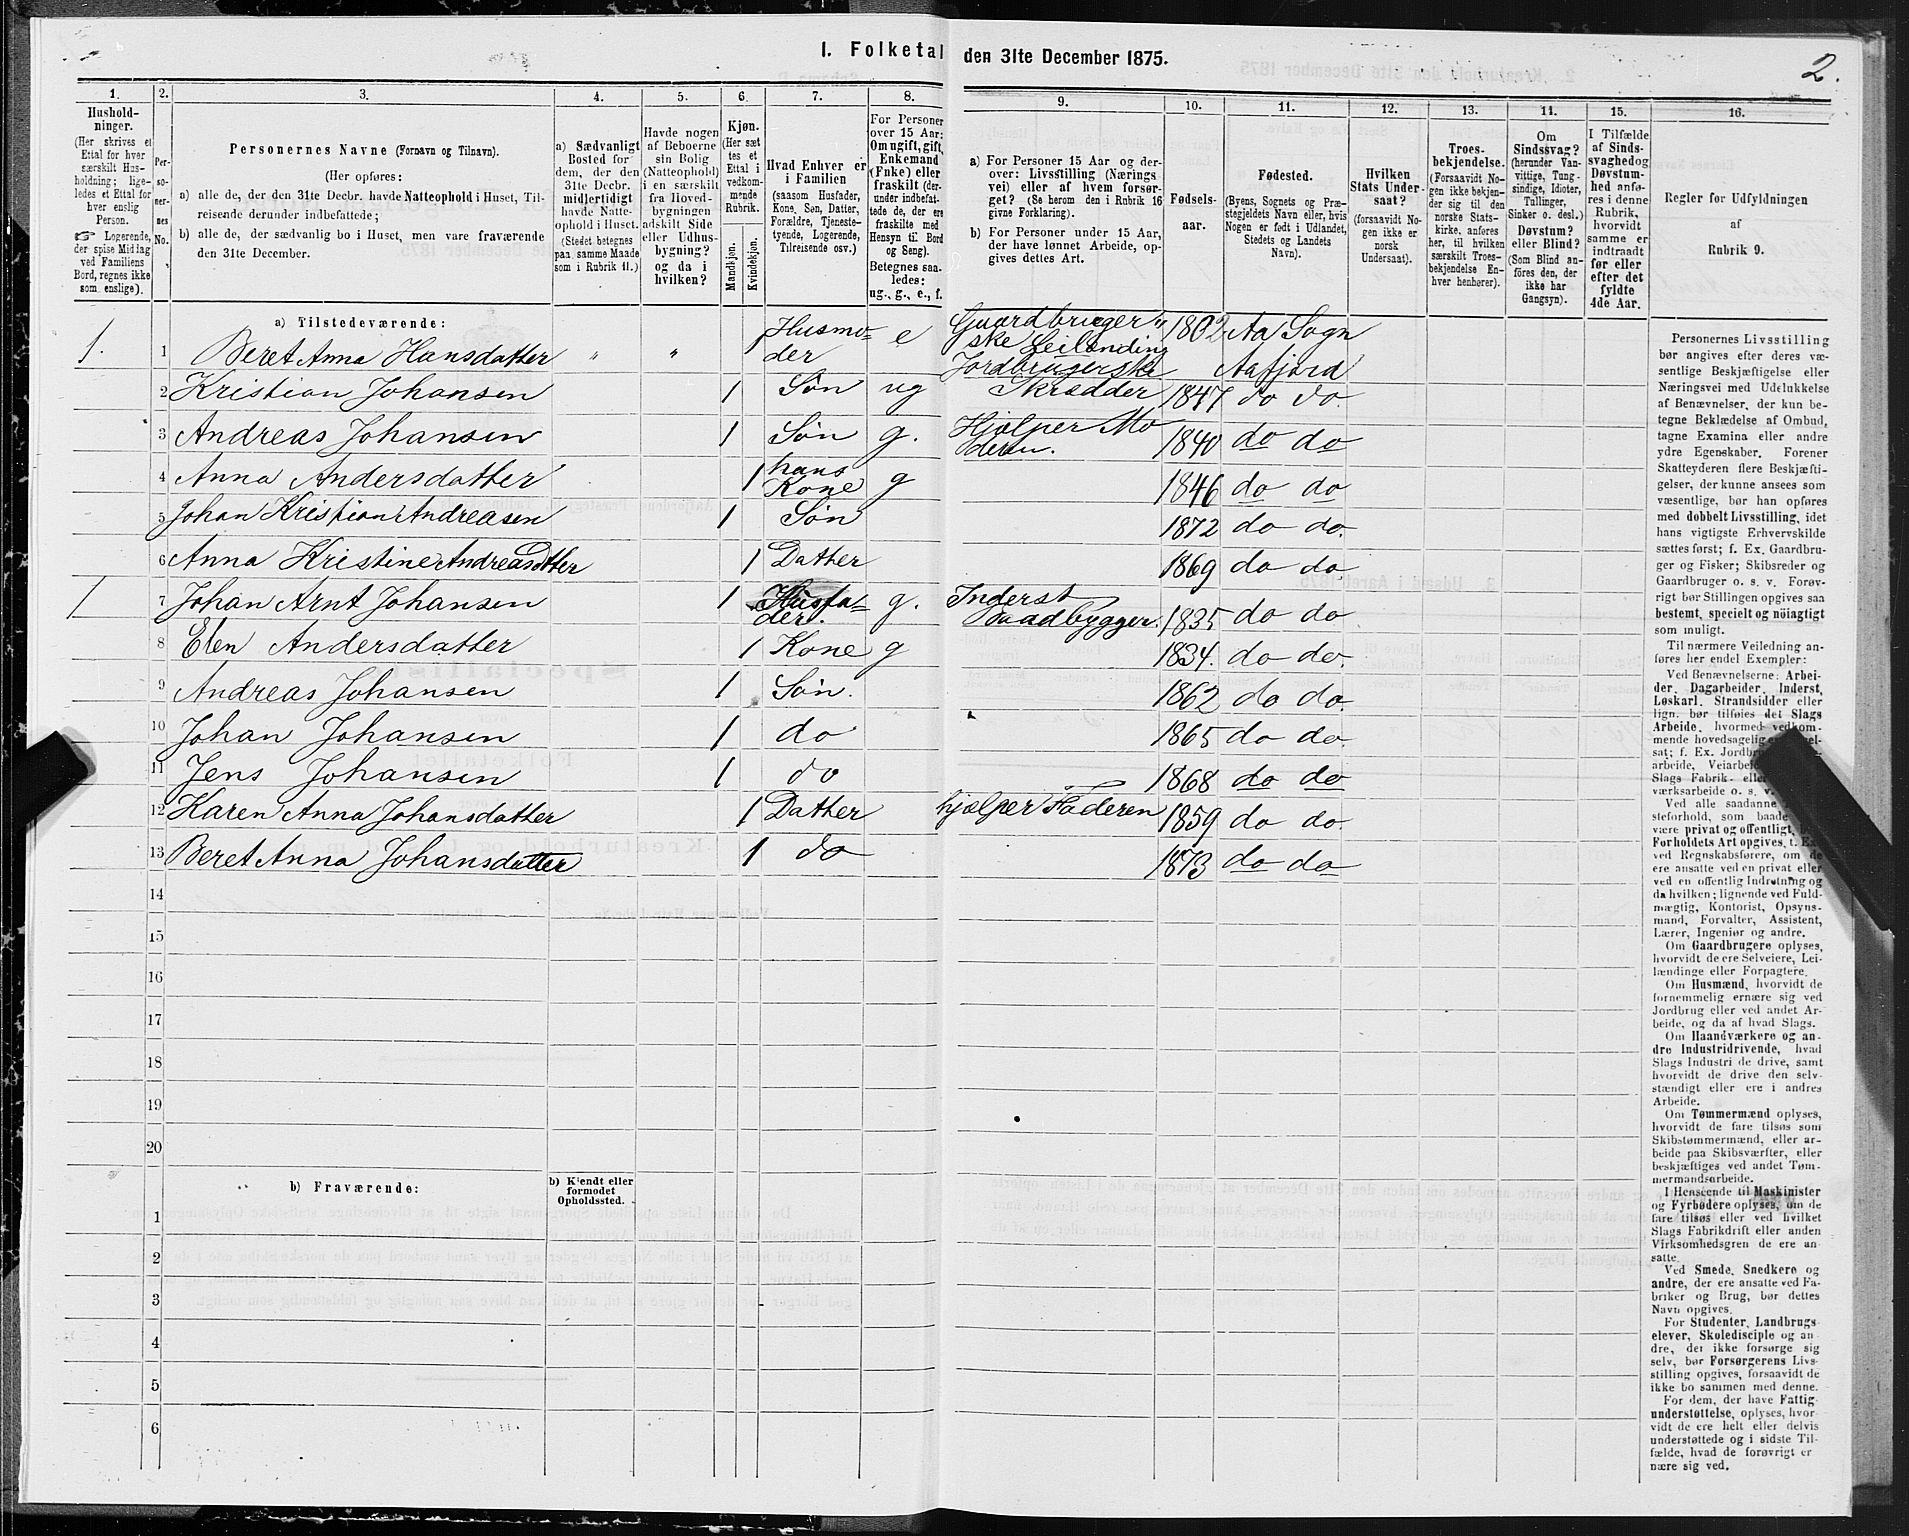 1. Folketal den 31te December 1875.
2.
1.
Hushold-
ninger.
(Her skrives et
Ettal for hver
særskilt Hus-
holdning; lige-
ledes et Ettal for
hver enslig
Person.
☞ Logerende,
der spise Middag
ved Familiens
Bord, regnes ikke
som enslige).
2.
Per-
so-
ner-
nes
No.
3.
Personernes Navne (Fornavn og Tilnavn).
(Her opføres:
a) alle de, der den 31te Decbr. havde Natteophold i Huset, Til-
reisende derunder indbefattede;
b) alle de, der sædvanlig bo i Huset, men vare fraværende
den 31te December.
4.
a) Sædvanligt
Bosted for
dem, der den
31te Decbr.
midlertidigt
havde Natte-
ophold i Huset.
(Stedet betegnes
paa samme Maade
som i Rubrik 11.)
5.
Havde nogen
af Beboerne
sin Bolig
(Natteophold)
i en særskilt
fra Hoved-
bygningen
adskilt Side
eller Udhus-
bygning?
og da i
hvilken?
6.
Kjøn.
(Her sæt
tes et
Ettal i
vedkom-
mende
Rubrik.
Mandkjøn.
Kvindekjøn.
7.
Hvad Enhver er
i Familien
(saasom Husfader,
Kone, Søn, Datter,
Forældre, Tjeneste-
tyende, Logerende,
Tilreisende osv.)
8.
For Personer
over 15 Aar:
Om ugift, gift,
Enkemand
(Enke) eller
fraskilt (der-
under indbefat-
tede de, der ere
fraskilte med
Hensyn til Bord
og Seng).
Betegnes saa-
ledes:
ug., g., e., f.
9.
a) For Personer 15 Aar og der-
over: Livsstilling (Nærings
vei) eller af hvem forsør-
get? (Se herom den i Rubrik 16
givne Forklaring).
b) For Personer under 15 Aar,
der have lønnet Arbeide, op-
gives dettes Art.
10.
Fødsels-
aar.
11.
Fødested.
(Byens, Sognets og Præ-
stegjeldets Navn eller, hvis
Nogen er født i Udlandet,
Stedets og Landets
Navn).
12.
Hvilken
Stats Under-
saat?
(forsaavidt No-
gen ikke er
norsk
Undersaat).
13.
Troes-
bekjendelse.
(Forsaavidt No-
gen ikke bekjen-
der sig til den
norske Stats-
kirke, anføres
her, til hvilken
særskilt Troes-
bekjendelse En-
hver henhører).
14.
Om
Sindssvag?
(herunder Van-
vittige, Tung-
sindige, Idioter,
Tullinger,
Sinker o. desl.)
Døvstum?
eller Blind?
(Som Blind an-
føres den, der
ikke har
Gangsyn).
15.
I Tilfælde
af Sinds-
svaghed og
Døvstum-
hed anfø-
res i denne
Rubrik,
hvorvidt
samme er
indtraadt
før eller
efter det
fyldte
4de Aar.
16.
Regler for Udfyldningen
af
Rubrik 9.
a) Tilstedeværende:
1. 1 Beret Anna Hansdatter " " 1 Husmo-
der e Gaardbruger-
ske Leilending
Jordbrugerske 1802 Aa Sogn
Aafjord
2 Kristian Johansen 1 Søn ug Skrædder 1847 do do.
3 Andreas Johansen 1 Søn g. Hjælper Mo
deren. 1840 do do
4 Anna Andersdatter 1 hans
Kone g 1846 do do
5 Johan Kristian Andreasen 1 Søn 1872 do do.
6 Anna Kristine Andreasdtter 1 Datter 1869 do do
1 7 Johan Arnt Johansen 1 Husfa-
der. g. Inderst
Baadbygger. 1835 do do
8 Elen Andersdatter 1 Kone g 1834. do do.
9 Andreas Johansen 1 Søn. 1862 do do.
10 Johan Johansen 1 do 1865 do do.
11 Jens Johansen 1 do 1868 do do
12 Karen Anna Johansdatter 1 Datter hjælper Faderen 1859 do do.
13 Beret Anna Johansdatter 1 do 1873 do do
14
15
16
17
18
19
20
b) Fraværende:
b) Kjendt eller
formodet
Opholdssted.
1
2
3
4
5
6
Personernes Livsstilling
bør angives efter deres væ-
sentlige Beskjæftigelse eller
Næringsvei med Udelukkelse
af Benævnelser, der kun be-
tegne Beklædelse af Ombud,
tagne Examina eller andre
ydre Egenskaber. Forener
Skatteyderen flere Beskjæfti-
gelser, der kunne ansees som
væsentlige, bør han opføres
med dobbelt Livsstilling, idet
hans vigtigste Erhvervskilde
sættes først; f. Ex. Gaardbru-
ger og Fisker; Skibsreder og
Gaardbruger o. s. v. Forøv-
rigt bør Stillingen opgives saa
bestemt, specielt og nöiagtigt
som muligt.
Til nærmere Veiledning an-
føres her endel Exempler:
Ved Benævnelserne: Arbei-
der, Dagarbeider, Inderst,
Løskarl, Strandsidder eller
lign. bør tilføies det Slags
Arbeide, hvormed vedkom-
mende hovedsagelig er
sat; f. Ex.
arbeide,
Slags Fabrik-
værksarbeide o. s. v.
Ved alle saadanne
steforhold, som baade
være privat og offentligt,
Forholdets Art opgives, t. Ex
ved Regnskabsførere, om de
ere ansatte ved en privat eller
ved en offentlig Indretning og
da hvilken; lignende ved Fuld-
mægtig, Kontorist, Opsyns-
mand, Forvalter, Assistent,
Lærer, Ingeniør og andre.
Om Gaardbrugere oplyses,
hvorvidt de ere Selveiere, Lei-
lændinge eller Forpagtere.
Om Husmænd, hvorvidt de
fornemmelig ernære sig ved
Jordbrug eller ved andet Ar-
beide, og da af hvad Slags.
Om Haandværkere og an-
dre Industridrivende, hvad
Slags Industri de drive, samt
hvorvidt de drive den selv-
stændigt eller ere i andres
Arbeide.
Om Tømmermænd oplyses,
hvorvidt de fare tilsøs som
Skibstømmermænd, eller ar-
beide paa Skibsværfter, eller
beskjæftiges ved andet Tøm-
mermandsarbeide.
I Henseende til Maskinister
og Fyrbødere oplyses, om de
fare tilsøs eller ved hvilket
Slags Fabrikdrift eller anden
Virksomhedsgren de ere an-
satte.
Ved Smede, Snedkere og
andre, der ere ansatte ved Fa-
briker og Brug, bør dettes
Navn opgives.
For Studenter, Landbrugs
elever, Skoledisciple og an
dre, der ikke forsørge sig
selv, bør Forsørgerens Livs-
stilling opgives, forsaavidt de
ikke bo sammen med denne.
For dem, der have Fattig-
understøttelse, oplyses, hvor-
vidt de ere helt eller delvis
understøttede og i sidste Til-
fælde, hvad de forøvrigt er
nære sig ved.